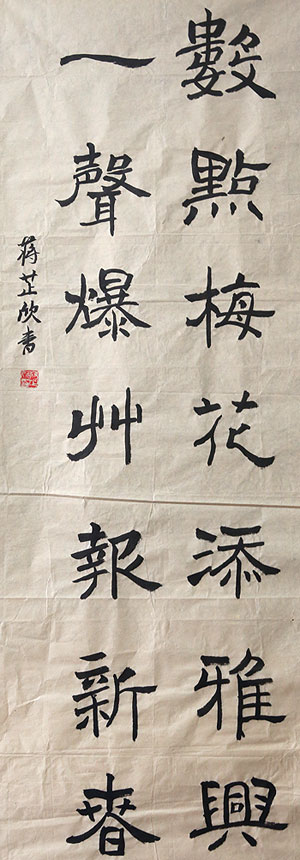 數點梅花添雅興
一聲爆竹報新春
蒋芷欣書